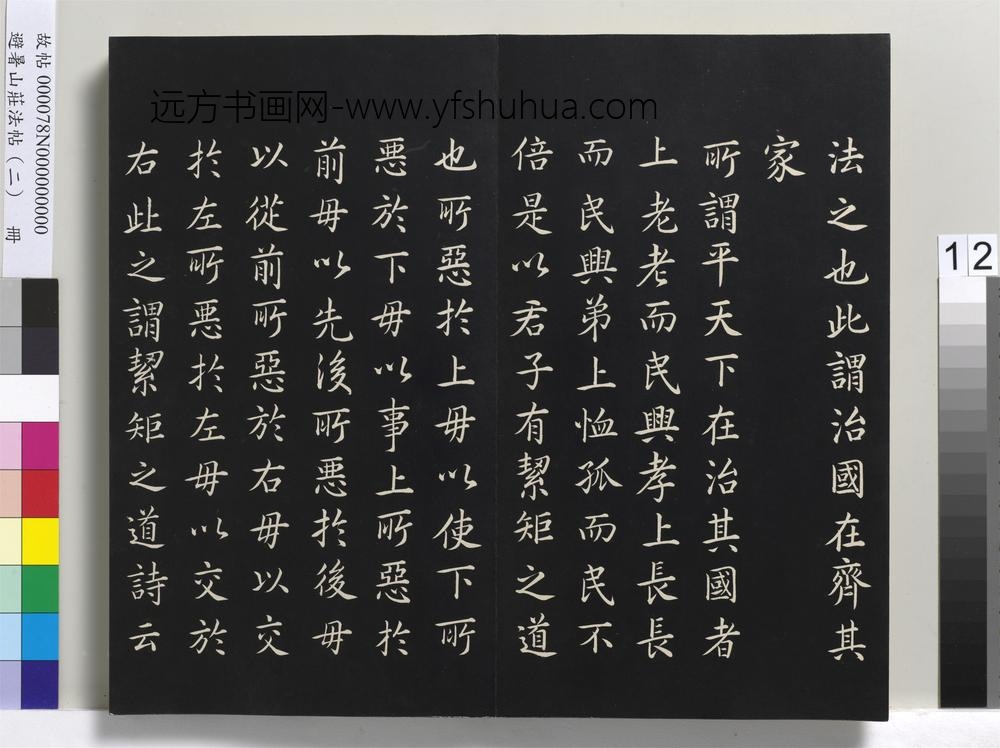 法之也此謂治國在齊其
家
所謂平天下在治其國者
上老老而民興孝上長長
而民興弟上恤孤而民不
倍是以君子有絜矩之道
也所惡於上毋以使下所
惡於下毋以事上所惡於
前毋以先後所惡於後毋
以從前所惡於右毋以交
於左所惡於左毋以交於
右此之謂絜矩之道詩云
远方书画网-www.yfshuhua.com
故帖 000078N000000000
避暑山莊法帖（二） 冊
12